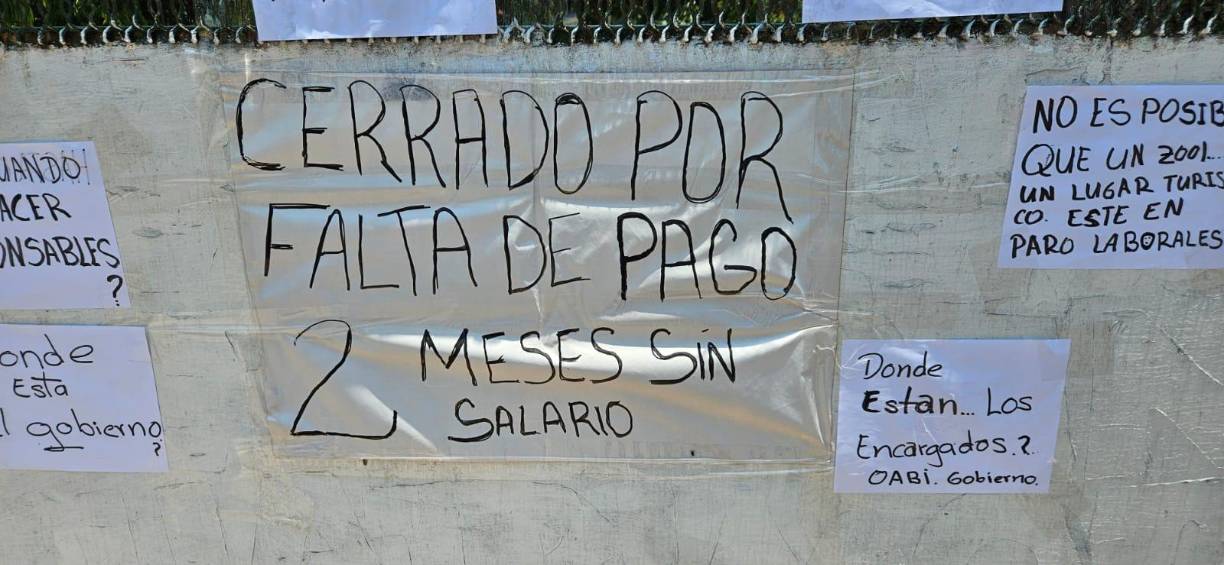 CERRADO POR
FALTA DE PAGO
2 MESES SIN
SALARIO
ACER
?
Esta
gobierno
?
NO ES
QUE UN ZOOL...
UN LUGAR
CO. ESTE EN
PARO LABORALES
Donde
Estan... Los
Encargados.?
OABI. Gobierno.